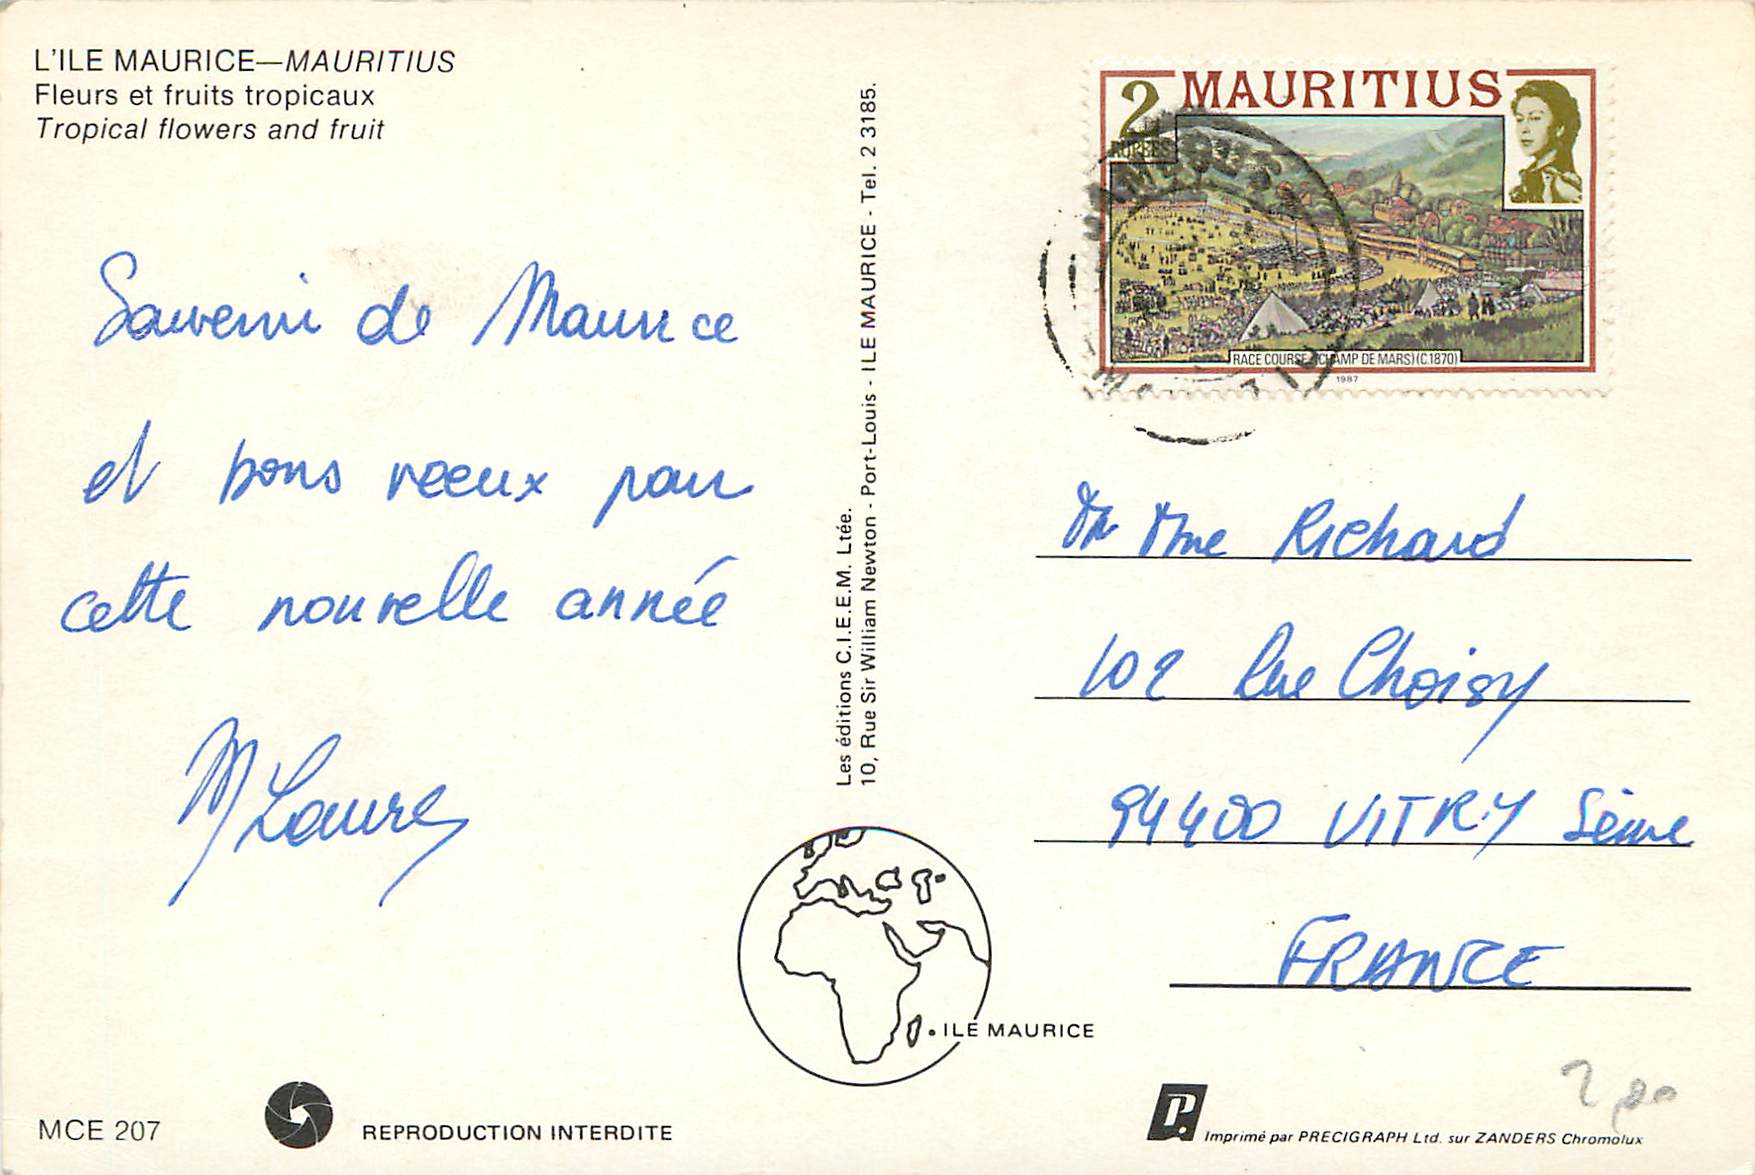 L'ILE MAURICE—MAURITIUS
Fleurs et fruits tropicaux
Tropical flowers and fruit
Souvenir de Maurice
et bons voeux pour
cette nouvelle année
M Laure
MCE 207
REPRODUCTION INTERDITE
Les éditions C.I.E.E.M. Ltée.
10, Rue Sir William Newton - Port-Louis - ILE MAURICE - Tel. 2 3185.
ILE MAURICE
2
RUPEES
MAURITIUS
RACE COURSE (CHAMP DE MARS) (C.1870)
1987
Mr Mme Richard
102 Rue Choisy
94400 VITRY Seine
FRANCE
P.
Imprimé par PRECIGRAPH Ltd. sur ZANDERS Chromolux